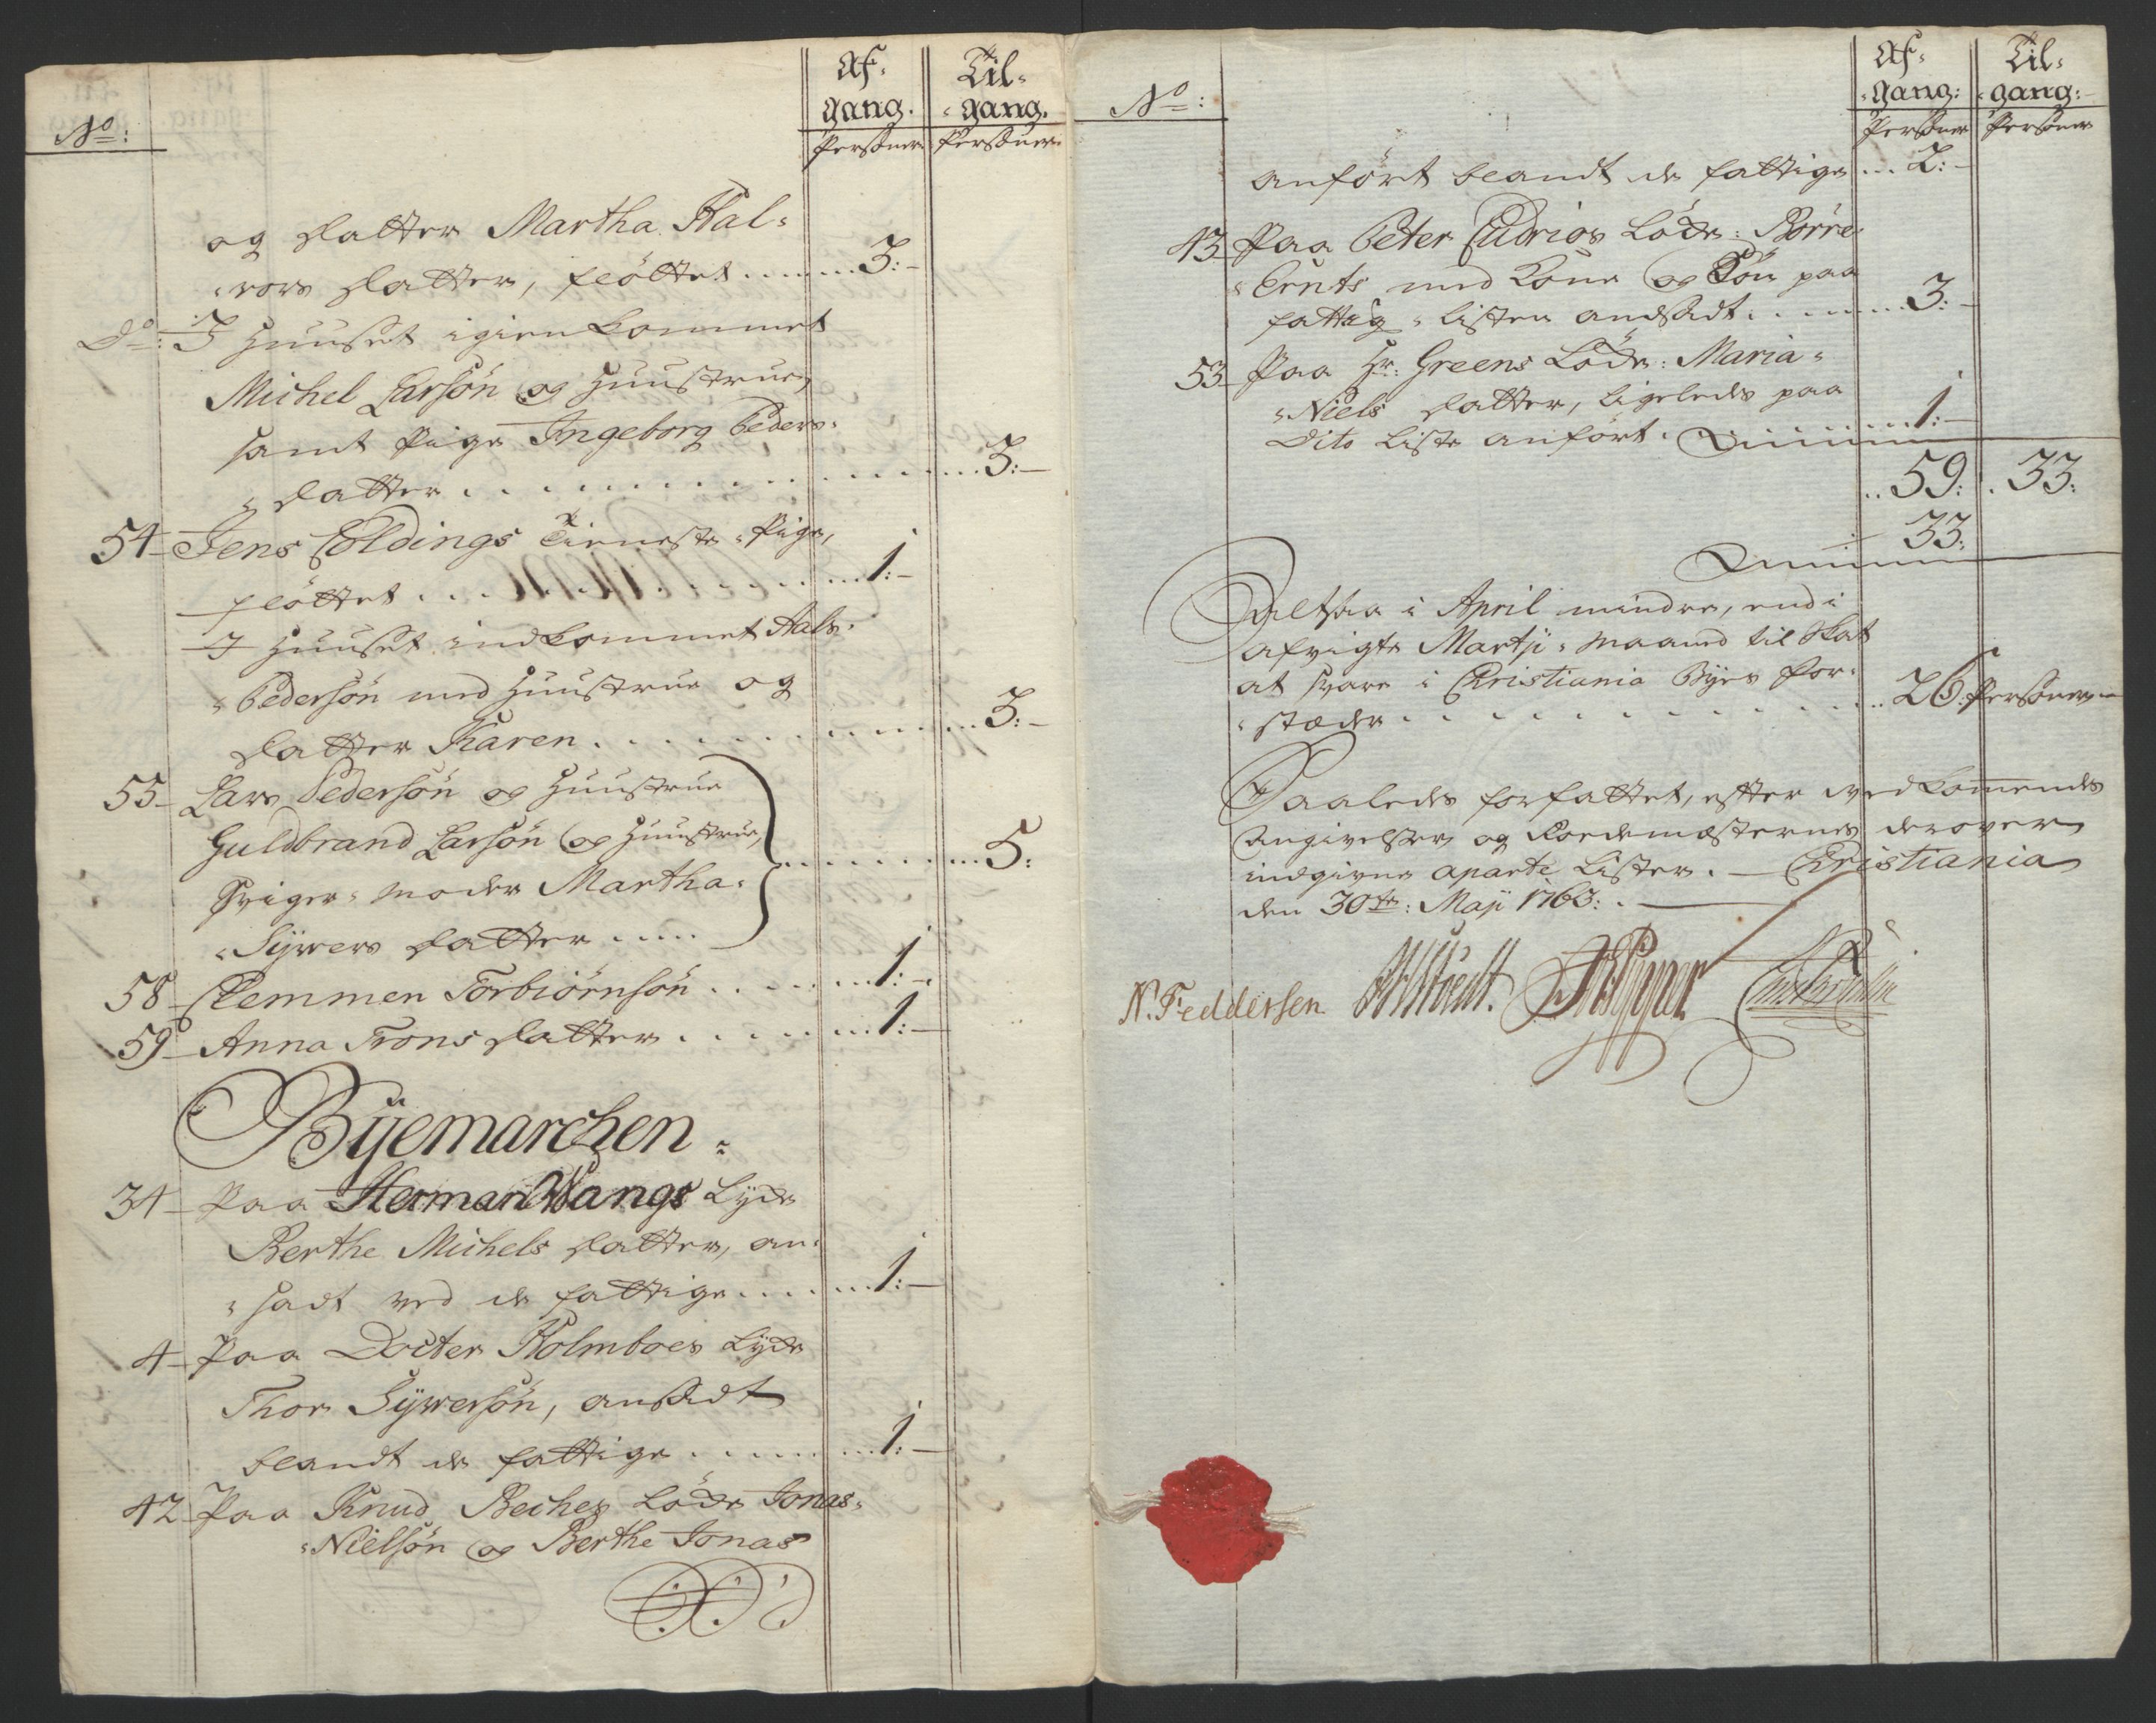 No:
Af-
gang.
Til-
-gang.
Personer
Personer
og datter Martha Hal-
-vors datter, fløttet ...... 3:-
Do: I Huuset igienkommet
Michel Larsøn og Huustrue,
samt Pige Ingeborg Peders-
-datter ............ 3:-
54- Jens Coldings Tieneste-Pige,
fløttet ............ 1:-
I Huuset indkommet Hals-
-Pedersøn med Huustrue og
datter Karen ............ 3:-
55- Lars Pedersøn og Huustrue
Guldbrand Larsøn og Huustrue,
Sviger-moder Martha- ............ 5:
-Syvers datter .....
58- Clemmen Torbiørnsøn ........ 1:-
59- Anna Trons datter ........ 1:-
Byemarchen.
34- Paa Herman Wangs Lyde
Berthe Michels datter, an-
-sadt ved de fattige ...... 1:-
4- Paa Docter Holmboes Lyde
Thor Syversøn, ansadt
blandt de fattige ........ 1:-
42- Paa Knud Beches Løde Jonas-
-Nielsøn og Berthe Jonas
No:
Af-
-gang:
Til-
-gang:
Personer
Personer
anført blandt de fattige ... 2:-
43- Paa Peter Cudrios Løde: Børre-
-Bernts med Kone og Søn paa
fattig-listen andsadt ........ 3:-
53- Paa Hr: Greens Løde: Maria-
-Niels datter, ligeledes paa
Dito Liste anført. ........ 1:-
59: 33:
33:
Altsaa i April mindre, end i
afvigte Martji-maaned til Skat
at svare i Christiania Byes for-
-stæder ............ 26. Personer
Saaledes forfattet, efter vedkommendes
Angivelser og Rodemæsternes derover
indgivne aparte Lister. - Christiania
den 30te: Maji 1763:.
N. Feddersen